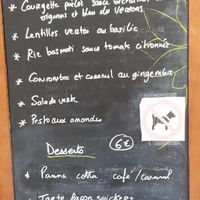 * Courgette poêlée sauce
oignons et bleu du Vercors
* Lentilles vertes au basilic
* Riz basmati sauce tomate citronnée
* Concombre et caramel au gingembre
* Salade verte
* Pesto aux amandes
Desserts 6€
* Panna cotta café/caramel
* Tarte façon snickers